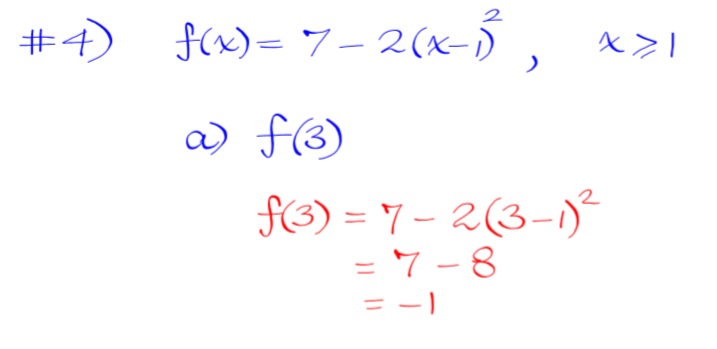 #4) f(x) = 7 - 2(x-1)², x ⩾ 1
a) f(3)
f(3) = 7 - 2(3-1)²
= 7 - 8
= -1